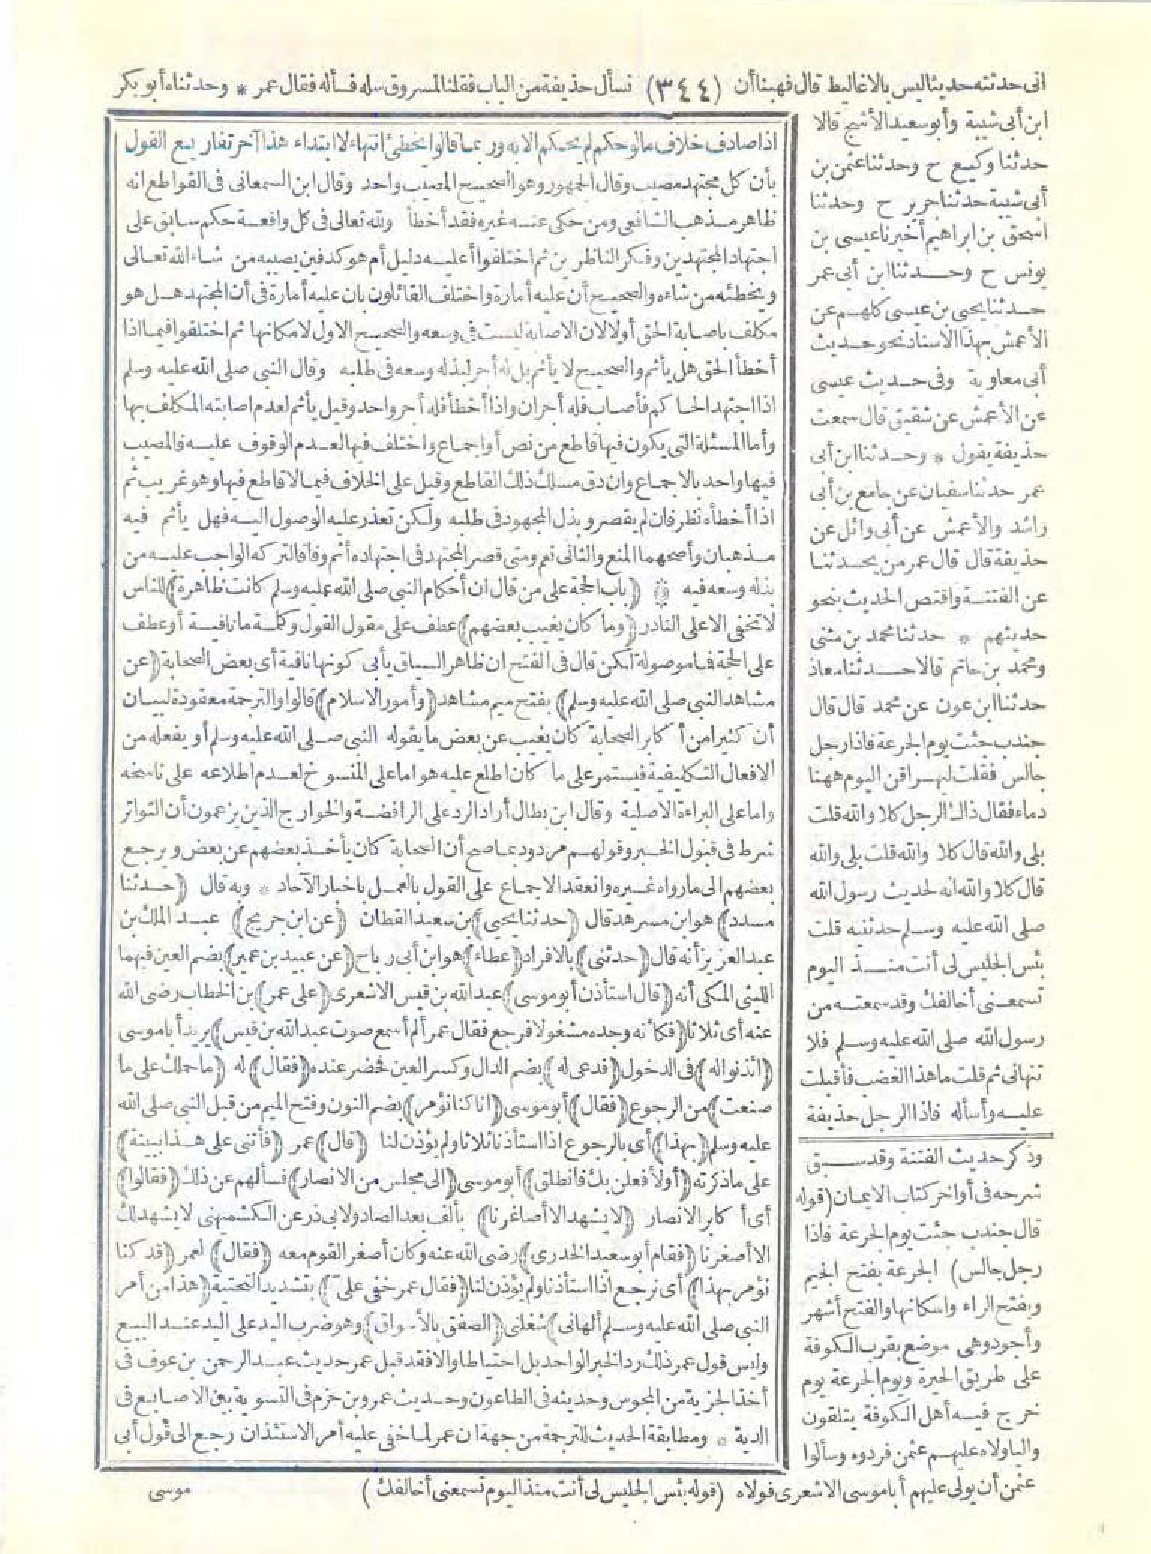 انى حدثته حديثا ليس بالاغاليط قال فهبنا أن (٣٤٤) نسأل حذيفة من الباب فقلنا لمسروق سله فسأله فقال عمر * وحدثناه أبو بكر
ابن أبى شيبة وأبو سعيد الأشج قالا
حدثنا وكيع ح وحدثنا عثمن بن
أبى شيبة حدثنا جرير ح وحدثنا
اسحق بن ابراهيم أخبرنا عيسى بن
يونس ح وحدثنا ابن أبى عمر
حدثنا يحيى بن عيسى كلهم عن
الأعمش بهذا الاسناد نحو حديث
أبى معاوية وفى حديث عيسى
عن الأعمش عن شقيق قال سمعت
حذيفة يقول * وحدثنا ابن أبى
عمر حدثنا سفيان عن جامع بن أبى
راشد والأعمش عن أبى وائل عن
حذيفة قال قال عمر من يحدثنا
عن الفتنة واقتص الحديث بنحو
حديثهم * حدثنا محمد بن مثنى
ومحمد بن حاتم قالا حدثنا معاذ
حدثنا ابن عون عن محمد قال قال
جندب جئت يوم الجرعة فاذا رجل
جالس فقلت ليهراقن اليوم ههنا
دماء فقال ذاك الرجل كلا والله قلت
بلى والله قال كلا والله قلت بلى والله
قال كلا والله انه لحديث رسول الله
صلى الله عليه وسلم حدثنيه قلت
بئس الجليس لى أنت منذ اليوم
تسمعنى أخالفك وقد سمعته من
رسول الله صلى الله عليه وسلم فلا
تنهانى ثم قلت ما هذا الغضب فأقبلت
عليه وأسأله فاذا الرجل حذيفة
وذكر حديث الفتنة وقد سبق
شرحه فى أواخر كتاب الايمان (قوله
قال جندب جئت يوم الجرعة فاذا
رجل جالس) الجرعة بفتح الجيم
وبفتح الراء واسكانها والفتح أشهر
وأجود وهى موضع بقرب الكوفة
على طريق الحيرة ويوم الجرعة يوم
خرج فيه أهل الكوفة يتلقون
واليا ولاه عليهم عثمن فردوه وسألوا
عثمن أن يولى عليهم أبا موسى الاشعرى فولاه (قوله بئس الجليس لى أنت منذ اليوم تسمعنى أخالفك)
اذا صادف خلاف ما لو حكم لم يحكم الا به وربما قالوا يخطئ انتهاء لا ابتداء هذا آخر تفاريع القول
بأن كل مجتهد مصيب وقال الجمهور وهو الصحيح المصيب واحد وقال ابن السمعانى فى القواطع انه
ظاهر مذهب الشافعى ومن حكى عنه غيره فقد أخطأ ولله تعالى فى كل واقعة حكم سابق على
اجتهاد المجتهدين وفكر الناظرين ثم اختلفوا أعليه دليل أم هو كدفين يصيبه من شاء الله تعالى
ويخطئه من شاءه والصحيح أن عليه أمارة واختلف القائلون بان عليه أمارة فى أن المجتهد هل هو
مكلف باصابة الحق أولا لان الاصابة ليست فى وسعه والصحيح الاول لامكانها ثم اختلفوا فيما اذا
أخطأ الحق هل يأثم والصحيح لا يأثم بل له أجر لبذله وسعه فى طلبه وقال النبى صلى الله عليه وسلم
اذا اجتهد الحاكم فأصاب فله أجران واذا أخطأ فله أجر واحد وقيل يأثم لعدم اصابته المكلف بها
وأما المسئلة التى يكون فيها قاطع من نص أو اجماع واختلف فيها لعدم الوقوف عليه فالمصيب
فيها واحد بالاجماع وان دق مسلك ذلك القاطع وقيل على الخلاف فيما لا قاطع فيها وهو غريب ثم
اذا أخطأه نظر فان لم يقصر وبذل المجهود فى طلبه ولكن تعذر عليه الوصول اليه فهل يأثم فيه
مذهبان وأصحهما المنع والثانى نعم ومتى قصر المجتهد فى اجتهاده أثم وفاقا لتركه الواجب عليه من
بذله وسعه فيه ۞ (باب الحجة على من قال ان أحكام النبى صلى الله عليه وسلم كانت ظاهرة) للناس
لا تخفى الا على النادر (وما كان يغيب بعضهم) عطف على مقول القول وكلمة ما نافية أو عطف
على الحجة فما موصولة لكن قال فى الفتح ان ظاهر السياق يأبى كونها نافية أى بعض الصحابة (عن
مشاهد النبى صلى الله عليه وسلم) بفتح ميم مشاهد (وأمور الاسلام) قالوا والترجمة معقودة لبيان
أن كثيرا من أكابر الصحابة كان يغيب عن بعض ما يقوله النبى صلى الله عليه وسلم أو يفعله من
الافعال التكليفية فيستمر على ما كان اطلع عليه هو اما على المنسوخ لعدم اطلاعه على ناسخه
واما على البراءة الاصلية وقال ابن بطال أراد الرد على الرافضة والخوارج الذين يزعمون أن التواتر
شرط فى قبول الخبر وقولهم مردود بما صح أن الصحابة كان يأخذ بعضهم عن بعض ويرجع
بعضهم الى ما رواه غيره وانعقد الاجماع على القول بالعمل باخبار الآحاد * وبه قال (حدثنا
مسدد) هو ابن مسرهد قال (حدثنا يحيى) بن سعيد القطان (عن ابن جريج) عبد الملك بن
عبد العزيز أنه قال (حدثنى) بالافراد (عطاء) هو ابن أبى رباح (عن عبيد بن عمير) بضم العين فيهما
الليثى المكى أنه (قال استأذن أبو موسى) عبد الله بن قيس الاشعرى (على عمر) بن الخطاب رضى الله
عنه أى ثلاثا (فكأنه وجده مشغولا فرجع فقال عمر ألم أسمع صوت عبد الله بن قيس) يريد أبا موسى
(ائذنوا له) فى الدخول (فدعى له) بضم الدال وكسر العين فحضر عنده (فقال) له (ما حملك على ما
صنعت) من الرجوع (فقال) أبو موسى (انا كنا نؤمر) بضم النون وفتح الميم من قبل النبى صلى الله
عليه وسلم (بهذا) أى بالرجوع اذا استأذنا ثلاثا ولم يؤذن لنا (قال) عمر (فأتنى على هذا ببينة)
على ما ذكرته (أو لأفعلن بك فانطلق) أبو موسى (الى مجلس من الانصار) فسألهم عن ذلك (فقالوا)
أى أكابر الانصار (لا يشهد الا أصاغرنا) بألف بعد الصاد ولابى ذر عن الكشميهنى لا يشهد لك
الا أصغرنا (فقام أبو سعيد الخدرى) رضى الله عنه وكان أصغر القوم معه (فقال) لعمر (قد كنا
نؤمر بهذا) أى نرجع اذا استأذنا ولم يؤذن لنا (فقال عمر خفى علىّ) بتشديد التحتية (هذا من أمر
النبى صلى الله عليه وسلم ألهانى) شغلنى (الصفق بالأسواق) وهو ضرب اليد على اليد عند البيع
وليس قول عمر ذلك ردا لخبر الواحد بل احتياطا والا فقد قبل عمر حديث عبد الرحمن بن عوف فى
أخذ الجزية من المجوس وحديثه فى الطاعون وحديث عمرو بن حزم فى التسوية بين الاصابع فى
الدية * ومطابقة الحديث للترجمة من جهة ان عمر لما خفى عليه أمر الاستئذان رجع الى قول أبى
موسى